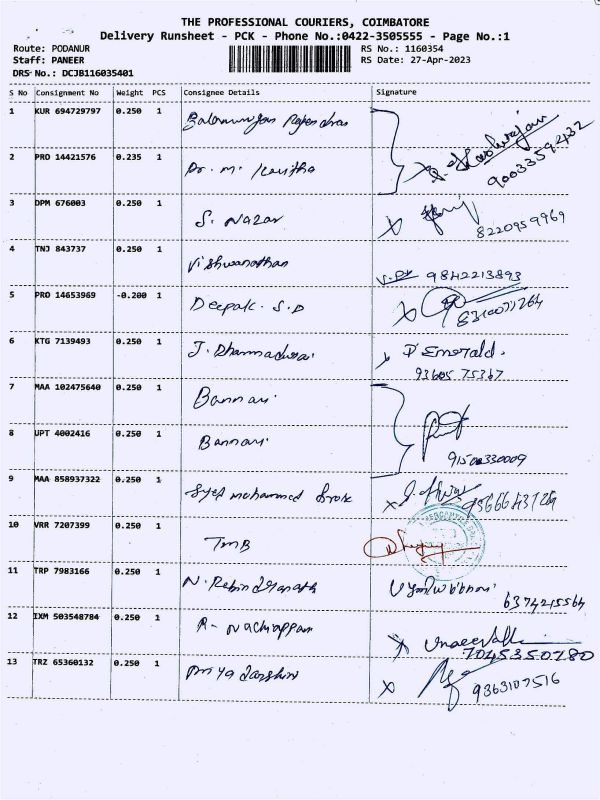 THE PROFESSIONAL COURIERS, COIMBATORE
Delivery Runsheet - PCK - Phone No.:0422-3505555 - Page No.:1
Route: PODANUR RS No.: 1160354
Staff: PANEER RS Date: 27-Apr-2023
DRS No.: DCJB116035401
S No Consignment No Weight PCS Consignee Details Signature
1 KUR 694729797 0.250 1
9003359432
2 PRO 14421576 0.235 1 Dr. M. Kavitha
3 DPM 676003 0.250 1 S. Nazar
8220959969
4 TNJ 843737 0.250 1 Vishwanathan
9842213893
5 PRO 14653969 -0.200 1 Deepak. S.D
8310077264
6 KTG 7139493 0.250 1 J. Dharmadurai D'Emerald.
93605 75367
7 MAA 102475640 0.250 1 Bannari
8 UPT 4002416 0.250 1 Bannari
9150330009
9 MAA 858937322 0.250 1 Syed mohammed
10 VRR 7207399 0.250 1 TMB
11 TRP 7983166 0.250 1 N. Rabindranath
6374215564
12 IXM 503548784 0.250 1 R. Nachiappan
7045350780
13 TRZ 65360132 0.250 1 Priyadarshini
9363107516